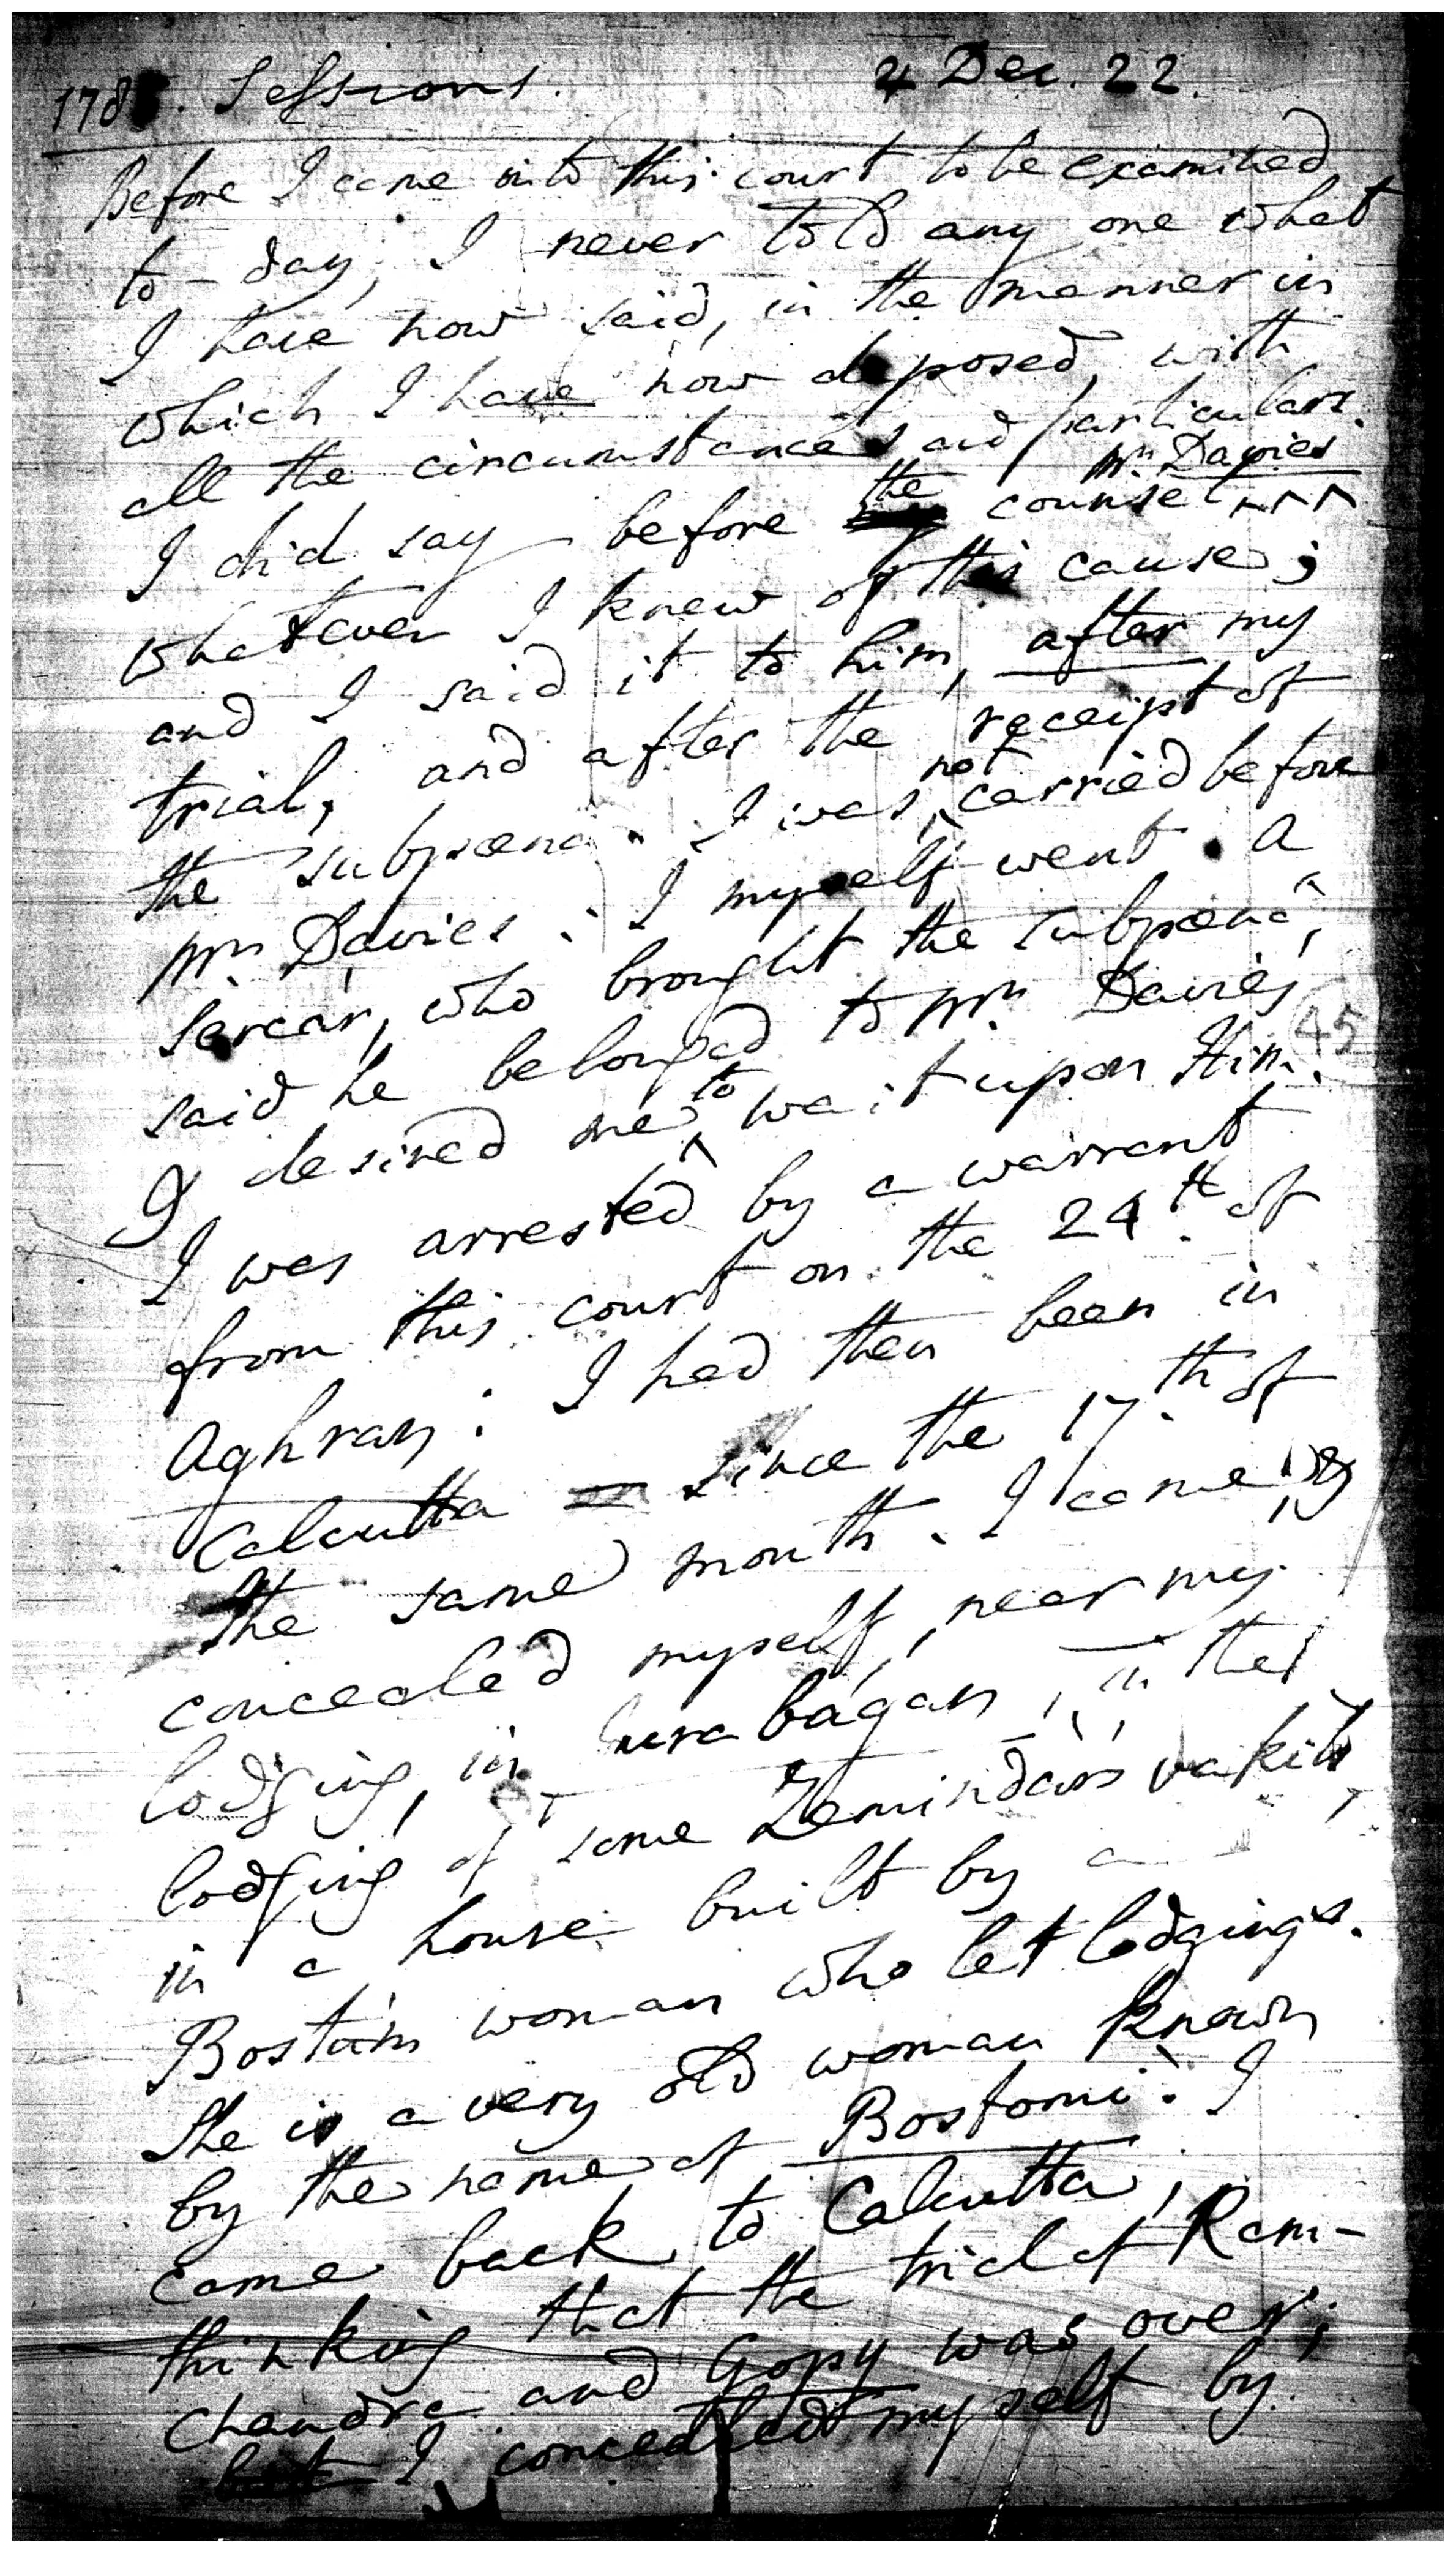 Sessions. 4 Dec. 22.
Before I came into this court to be examined
to-day, I never told any one what
I have now said, in the manner in
which I have now deposed, with
all the circumstances and particulars.
Mr. Davies
I did say before the counsel
whatever I knew of this cause;
and I said it to him, after my
trial, and after the receipt of
the subpoena. I was not carried before
Mr. Davies: I myself went. A
Sercar, who brought the subpoena,
said he belonged to Mr. Davies
& desired me to wait upon Him.
45
I was arrested by a warrant
from this court on the 24th of
Aghran: I had then been in
Calcutta since the 17th of
the same month. I came &
concealed myself, near my
lodging, in bagan, in the
lodging of some Zemindar's vakils,
in a house built by a
Bostom woman who let lodgings.
She is a very old woman known
by the name of Bostomi. I
came back to Calcutta,
thinking that the trial of Ram-
chandra and Gopy was over;
but I concealed myself by